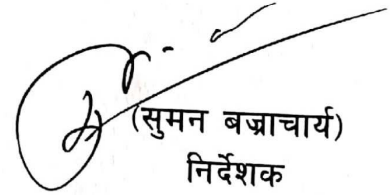 (सुमन बज्राचार्य)
निर्देशक